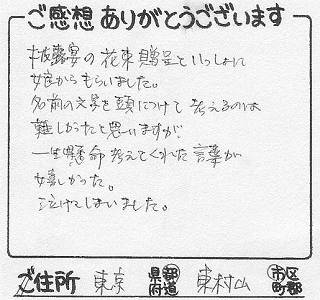 ご感想ありがとうございます
披露宴の花束贈呈といっしょに
娘からもらいました。
名前の文字を頭につけて考えるのは
難しかったと思いますが
一生懸命考えてくれた言葉が
嬉しかった。
泣けてしまいました。
ご住所 東京 都道府県 東村山 市区町郡